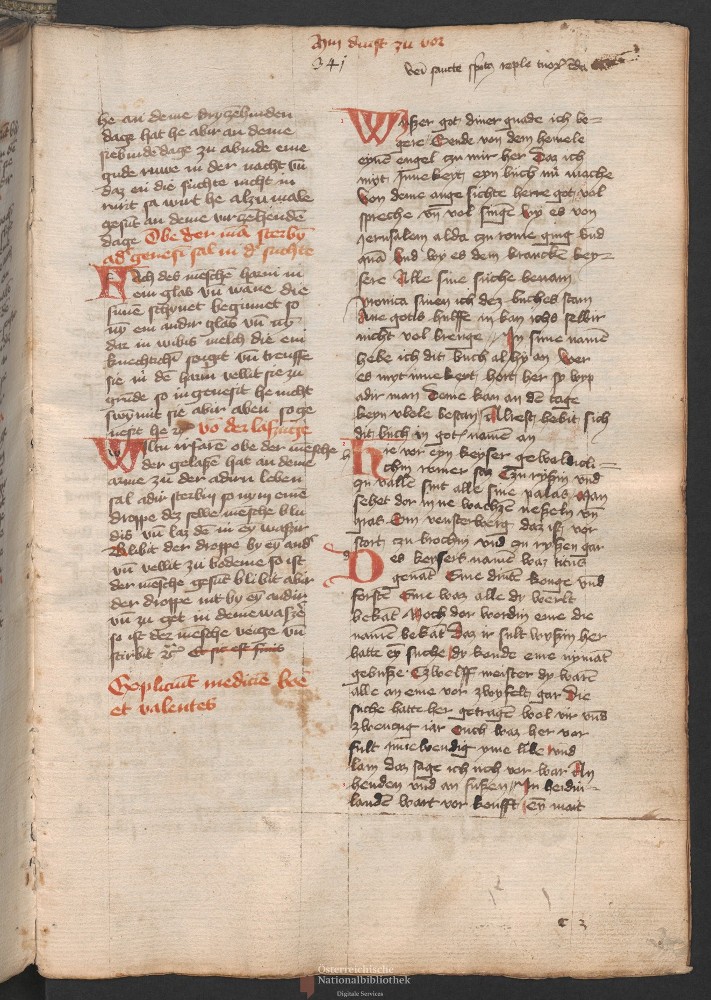 Myn dinst zu vor
341
veni sancte sp̄us reple tuoꝝ
he an deme dryzehinden
dage hat he abir an deme
siebinde dage zu abinde eine
gude ruwe in der nacht vn̄
daz en die suchte nicht in
rurit so wirt he alzu male
gesūt an deme virzehendē
dage Obe der mā sterbȳ
adʾ genesī sal in dʾ suchte
Fach des mēschē harm in
ein glas vn̄ wāne die
sūne schynet beginnet so
nȳ ein andir glas vn̄ nȳ
dar in wibis melch die ein
knechtichī souget vn̄ treuffe
sie in dē harm vellit sie zu
grūde so in genesit he nicht
swȳmit sie abir abēn so ge
nesit he vō der laszunge
Wiltu irfarē obe der mēsche
der gelasē hat an deme
arme zu der adirn lebēn
sal adir sterbin so nȳ eine
droppe dez selbē mēsche blu
dis vn̄ laz dē in eȳ wassir
Blibit der droppe by eȳ andʾ
vn̄ vellit zu bodeme so ist
der mēsche gesūt blibit abir
der droppe nit by eȳ andir
vn̄ zu get in deme wasꝫe
so ist dez mēsche veige vn̄
stirbit ⁊c̄ Et sic est finis
Explicinūt medicīe boē
et valentes
Wasꝫer got diner gnade ich be-
gere Sende von dem hemele
eynē engel czu mir her Daz ich
myt Innekeyt eyn buch mᷓ mache
Von deme ange sichte herre got vol
spreche vn̄ vol singē wy es von
Jerusalem alda czu rome ging vnd
quā vnd wy es dem kranckē key-
sere Alle sine suche benam
vronica sinen ich dez buches stam
Ane gotis hulffe in kan ichs selbir
nicht vol brenge In sime namē
hebe ich dit buch al hy an Wer
es myt innekeyt hort her sy wyp
adir man Deme kan an dē tage
keyn vbele bestan Allrest hebit sich
dit buch in gotʾ namē an
Hie vor eyn keyser gewaldicli-
chin romer
qn valle sint alle sine palas Man
sehet dor inne wachzē neszeln vn̄
gras Ein vensterberg daz ist vor
stort czu brochin vnd czu ryszen gar
Des keysers namē waz titus
genāt Eme dintē konge vnd
forstē Eme waz alle dy werlt
bekāt Noch dor wordin eme die
namē bekāt Daz ir sult wyszin her
hatte eȳ suche dy konde eme nymāt
gebusze Czwelff meister dy warē
alle an eme vor zwyfelt gar Die
suche hatte her getragē wol vir vn̄d
zwenczig iar Ouch waz her vor
fult inwendig yme libe vnd
lam daz sage ich uch vor war An
henden vnd an fuszen In heidni-
landē wart vor koufft eȳ mait
c 3
Österreichische
Nationalbibliothek
Digitale Services